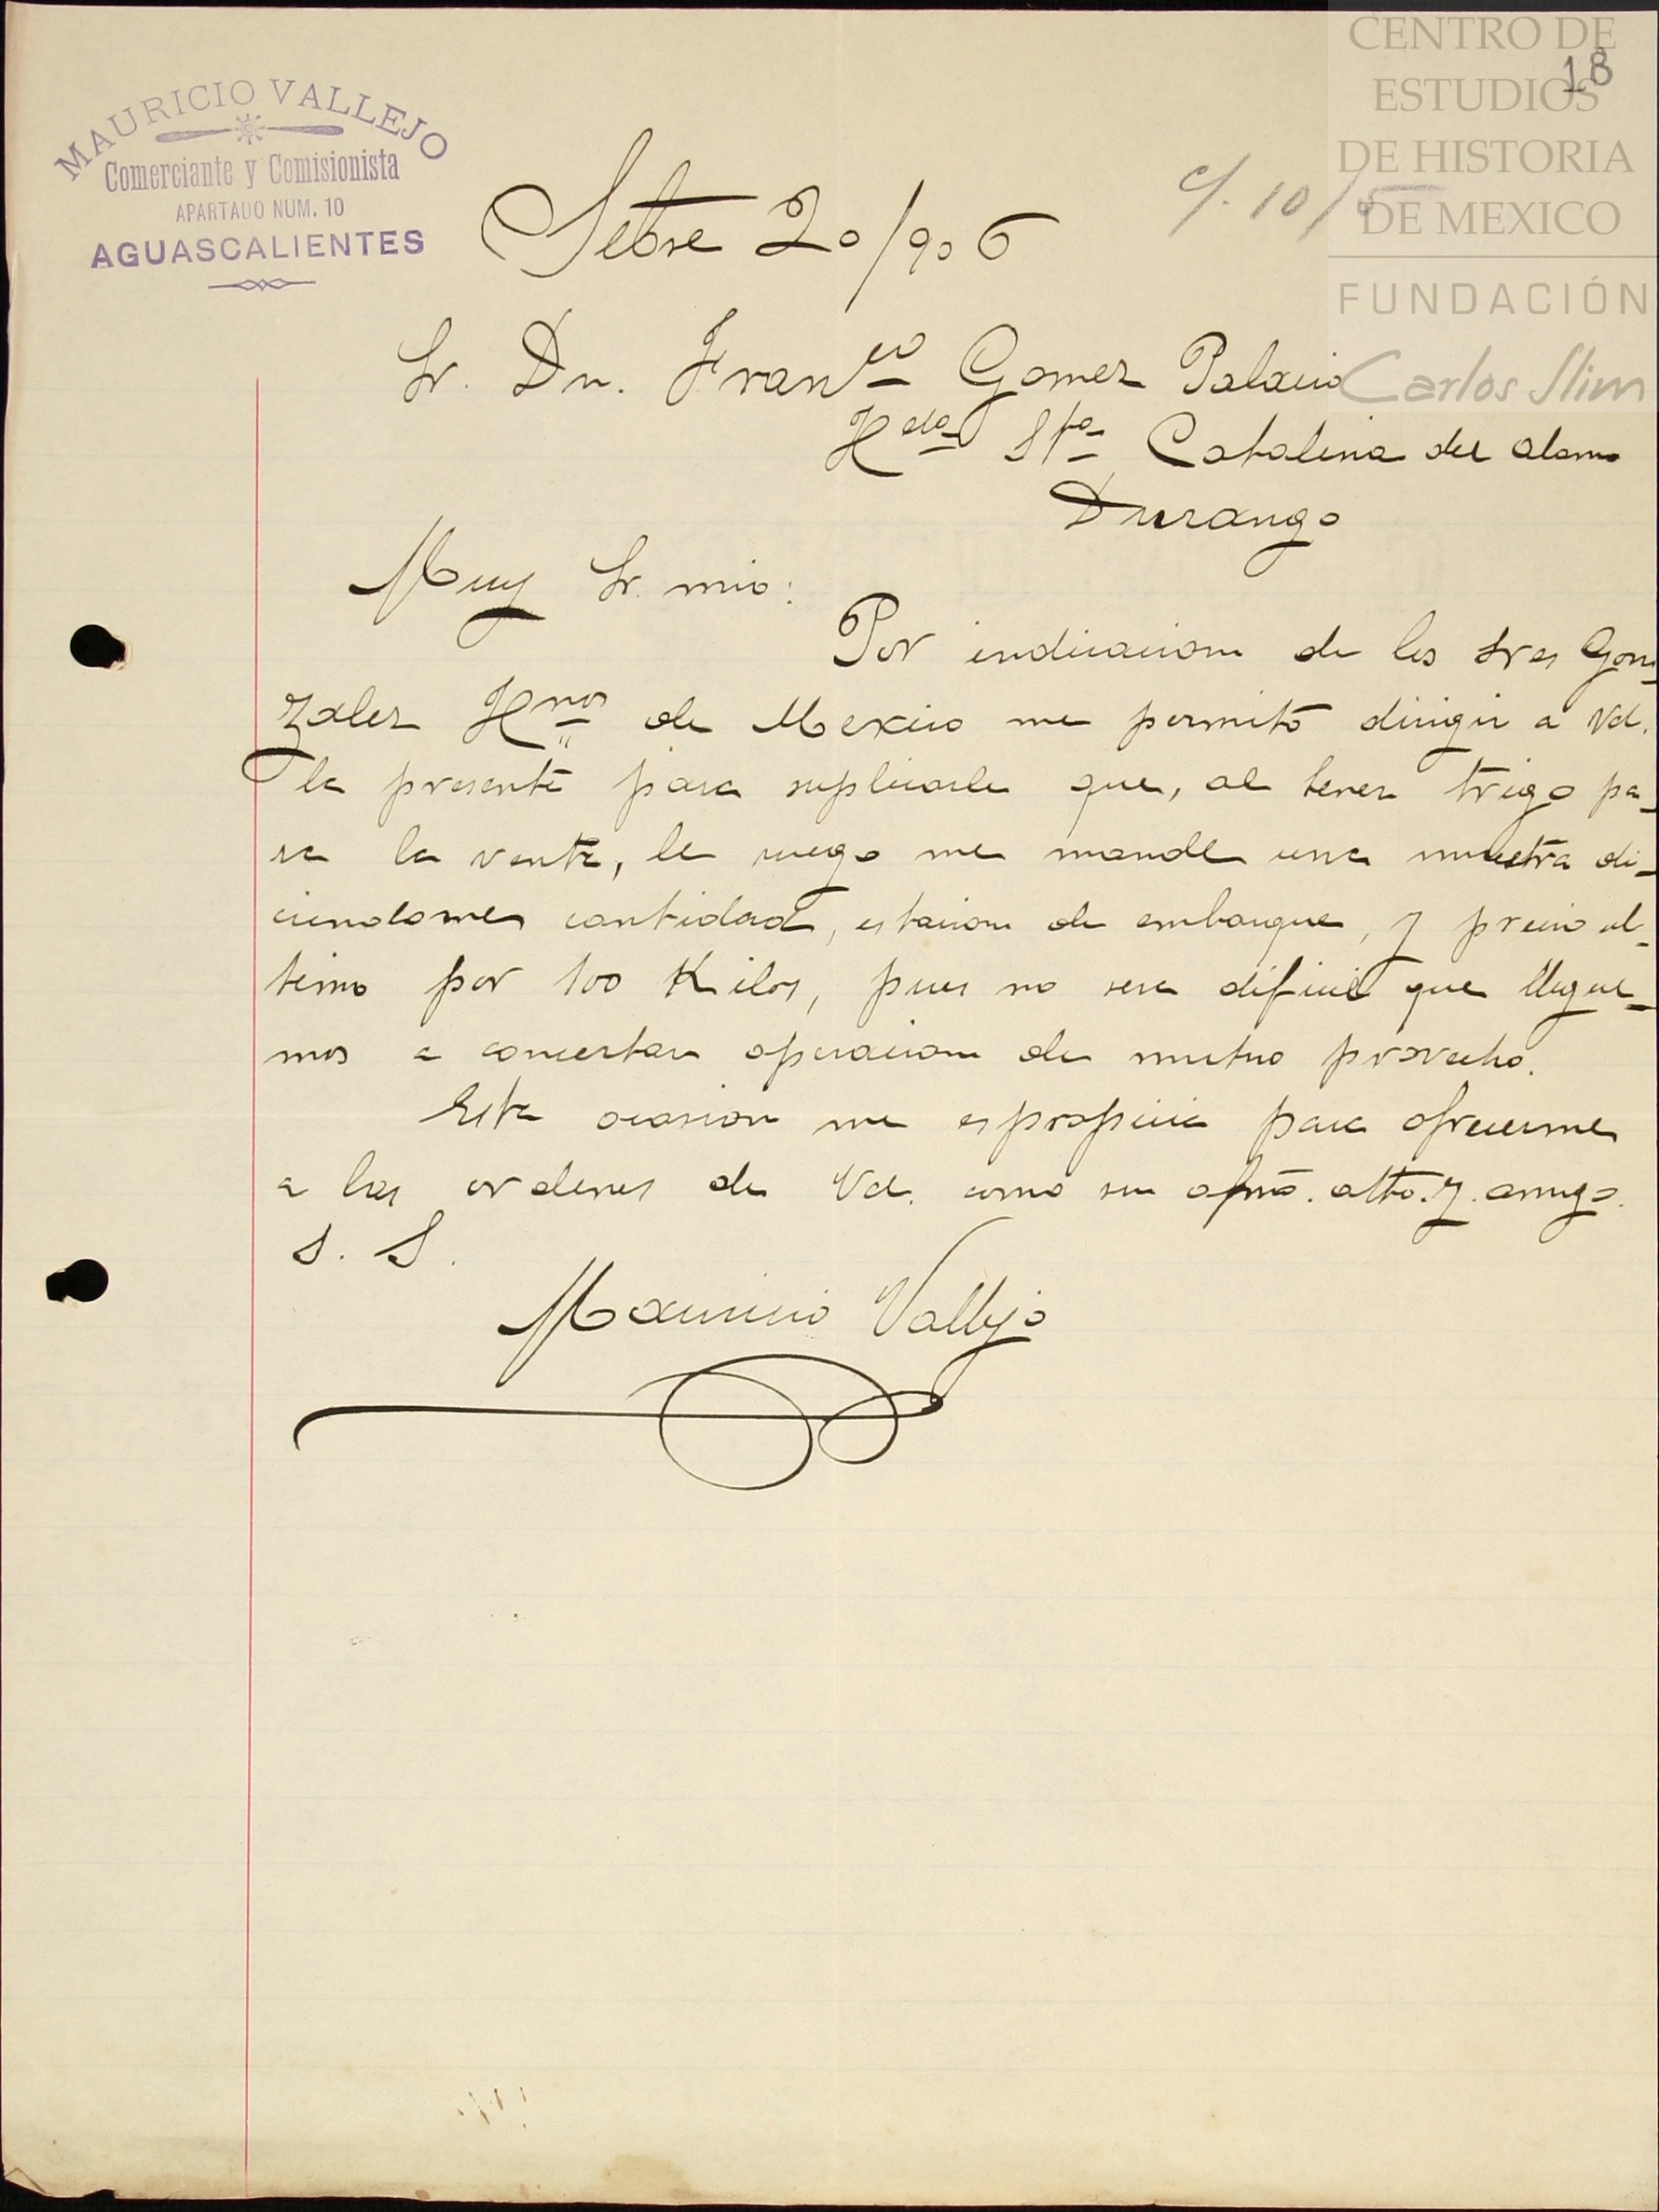 MAURICIO VALLEJO
Comerciante y Comisionista
APARTADO NUM. 10
AGUASCALIENTES
CENTRO DE
ESTUDIOS
DE HISTORIA
DE MEXICO
FUNDACIÓN
Carlos Slim
18
c/. 10/5
Setbre 20/906
Sr. Dn. Franco Gomez Palacio
Hda Sta Catalina del Alamo
Durango
Muy Sr. mio:
Por indicacion de los Sres Gon-
zalez Hnos de Mexico me permito dirigir a Vd.
la presente para suplicarle que, al tener trigo pa-
ra la venta, le ruego me mande una muestra di-
ciendome cantidad, estacion de embarque, y precio ul-
timo por 100 Kilos, pues no sera dificil que llegue-
mos a concertar operacion de mutuo provecho.
Esta ocasion me es propicia para ofrecerme
a las ordenes de Vd. como su afmo. atto. y. amigo.
S. S.
Mauricio Vallejo